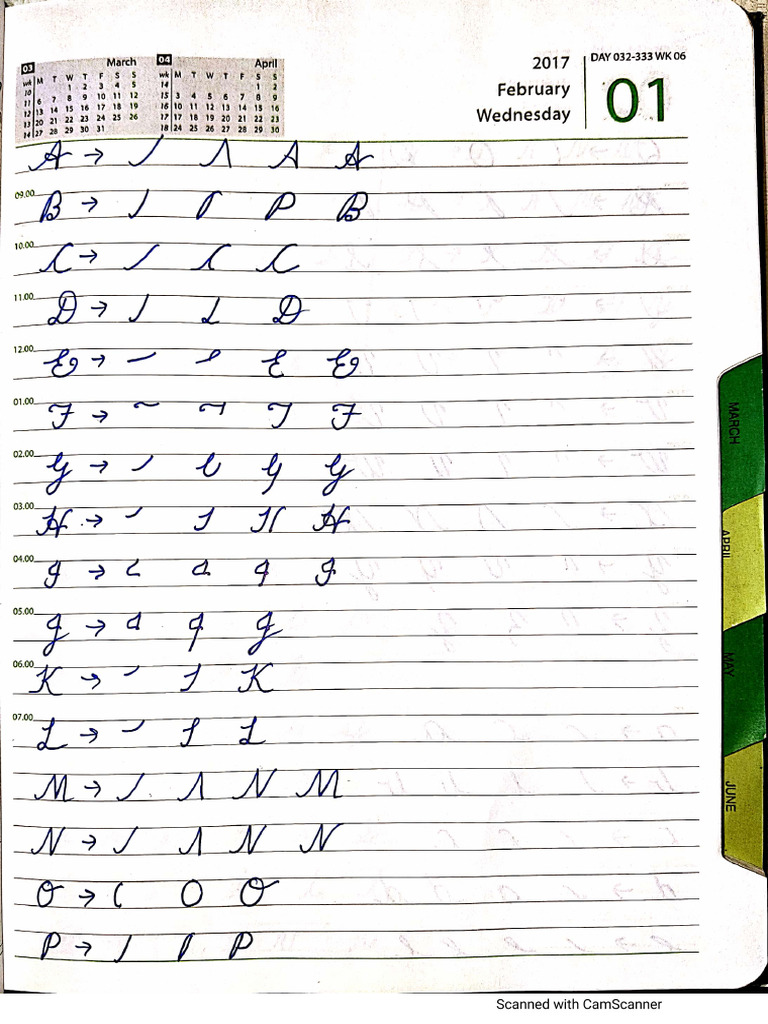 03 March 04 April
wk M T W T F S S wk M T W T F S S
10 1 2 3 4 5 14 1 2
11 6 7 8 9 10 11 12 15 3 4 5 6 7 8 9
12 13 14 15 16 17 18 19 16 10 11 12 13 14 15 16
13 20 21 22 23 24 25 26 17 17 18 19 20 21 22 23
14 27 28 29 30 31 18 24 25 26 27 28 29 30
2017
February
Wednesday
DAY 032-333 WK 06
01
A → A A
09.00 B → P B
10.00 C → C
11.00 D → D
12.00 E → E E
01.00 F → F
02.00 G → G
03.00 H → H
04.00 I → I
05.00 J → J
06.00 K → K
07.00 L → L
M → N M
N → N N
O → ( O O
P → P
MARCH
APRIL
MAY
JUNE
Scanned with CamScanner